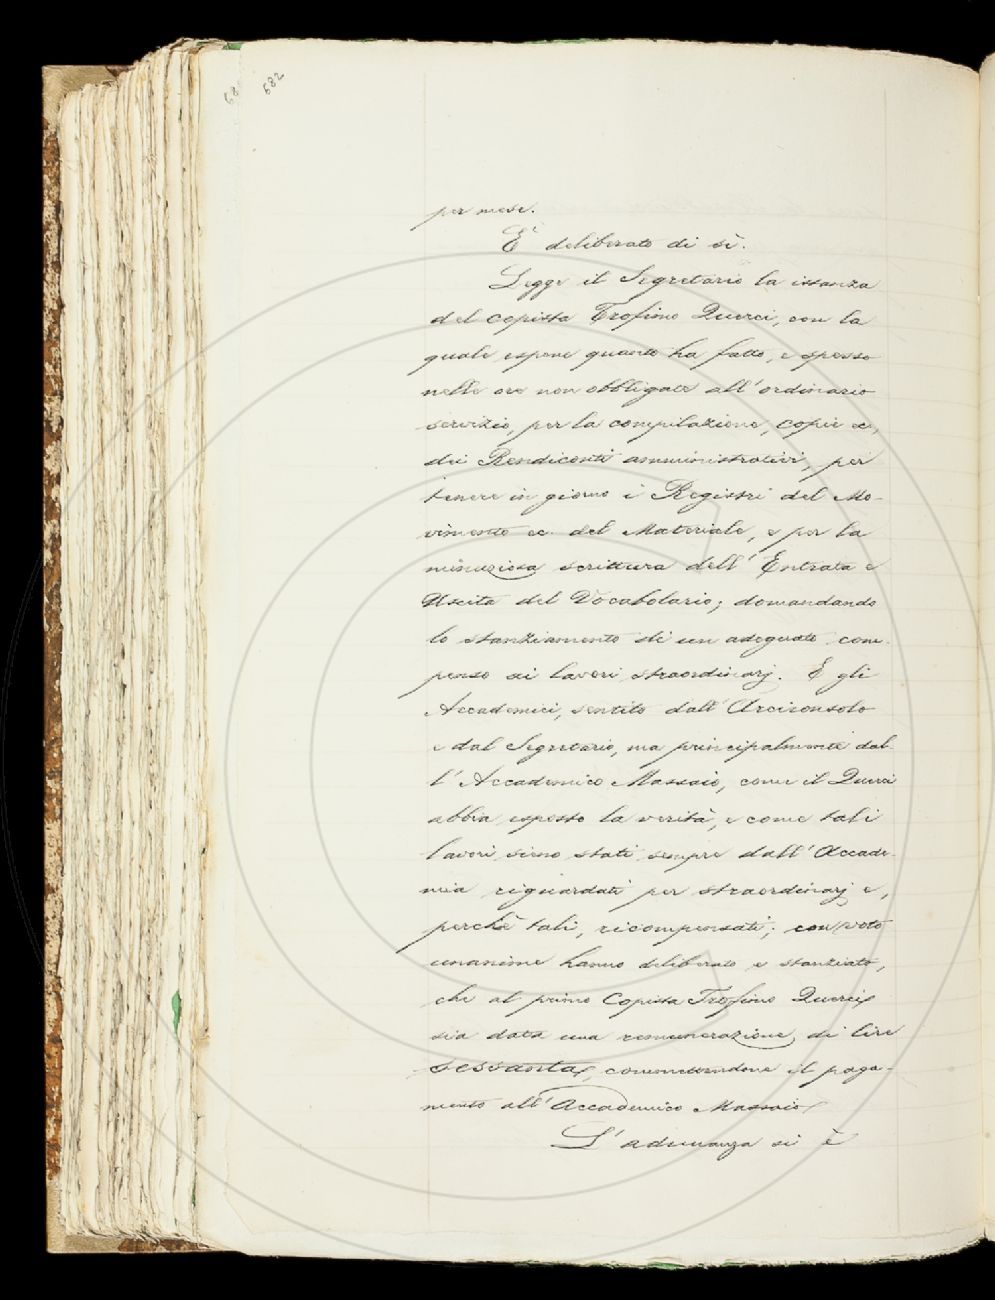 682
per mese.
È deliberato di sì.
Legge il Segretario la istanza
del Copista Trofimo Querci, con la
quale espone quanto ha fatto, e spesso
nelle ore non obbligate all'ordinario
servizio, per la compilazione, copie ec,
dei Rendiconti amministrativi, per
tenere in giorno i Registri del Mo-
vimento ec. del Materiale, e per la
minuziosa scrittura dell'Entrata e
Uscita del Vocabolario; domandando
lo stanziamento di un adeguato com-
penso ai lavori straordinarj. E gli
Accademici, sentito dall'Arciconsolo
e dal Segretario, ma principalmente dal-
l'Accademico Massaio, come il Querci
abbia esposto la verità, e come tali
lavori sieno stati sempre dall'Accade-
mia riguardati per straordinarj e,
perchè tali, ricompensati; con voto
unanime hanno deliberato e stanziato,
che al primo Copista Trofimo Querci
sia data una remunerazione di lire
sessanta, commettendone il paga-
mento all'Accademico Massaio.
L'adunanza si è